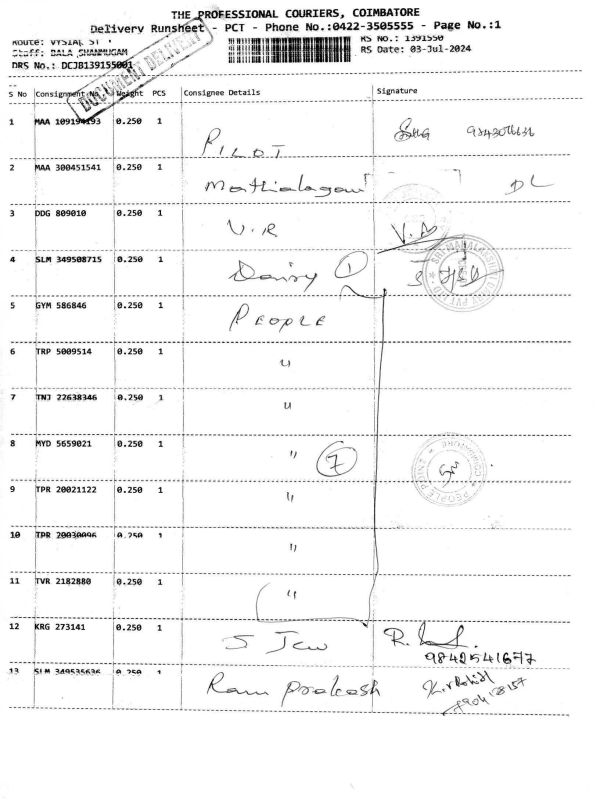 THE PROFESSIONAL COURIERS, COIMBATORE
Delivery Runsheet - PCT - Phone No.:0422-3505555 - Page No.:1
Route: VYSIAL ST RS No.: 1391550
Staff: BALA SHANMUGAM RS Date: 03-Jul-2024
DRS No.: DCJB139155001
DOCUMENT DELIVERY
S No Consignment No. Weight PCS Consignee Details Signature
1 MAA 109194193 0.250 1 PILOT
2 MAA 300451541 0.250 1 Mathialagan DL
3 DDG 809010 0.250 1 V.R
4 SLM 349508715 0.250 1 Dairy 1
5 GYM 586846 0.250 1 PEOPLE
6 TRP 5009514 0.250 1 "
7 TNJ 22638346 0.250 1 "
8 MYD 5659021 0.250 1 " 7
9 TPR 20021122 0.250 1 "
10 TPR 20030096 0.250 1 "
11 TVR 2182880 0.250 1 "
12 KRG 273141 0.250 1 9842541677
13 SLM 349535636 0.250 1 Ram prakash